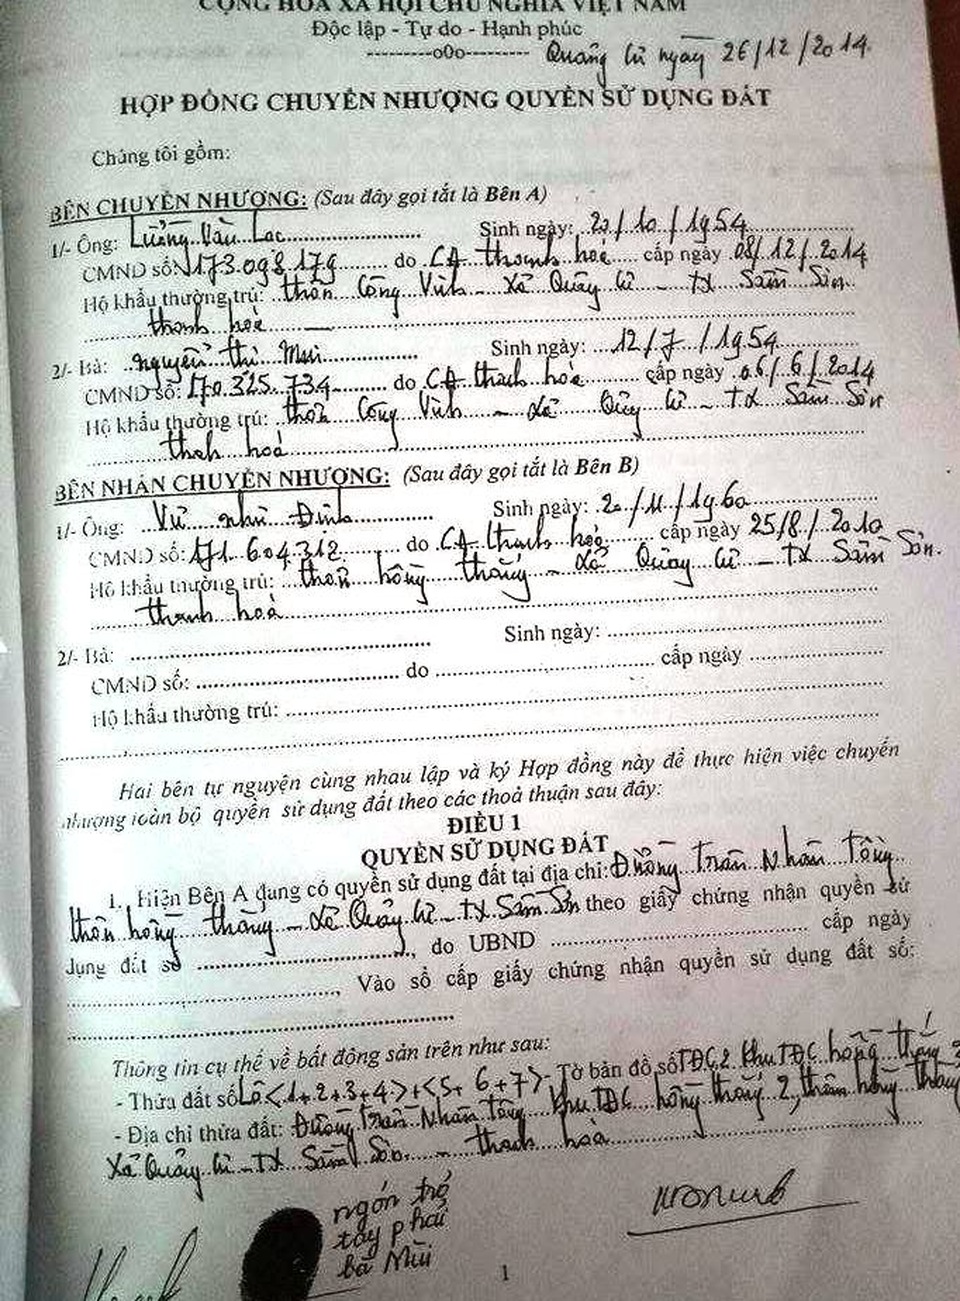 CỘNG HÒA XÃ HỘI CHỦ NGHĨA VIỆT NAM
Độc lập - Tự do - Hạnh phúc
---------o0o---------
Quảng Cư ngày 26/12/2014
HỢP ĐỒNG CHUYỂN NHƯỢNG QUYỀN SỬ DỤNG ĐẤT
Chúng tôi gồm:
BÊN CHUYỂN NHƯỢNG: (Sau đây gọi tắt là Bên A)
1/- Ông: Lường Văn Lạc Sinh ngày: 20/10/1954
CMND số: 173.098.179 do CA thanh hoá cấp ngày 08/12/2014
Hộ khẩu thường trú: thôn Công Vinh - xã Quảng Cư - TX Sầm Sơn
thanh hoá
2/- Bà: nguyễn thị Mùi Sinh ngày: 12/7/1954
CMND số: 170.325.734 do CA thanh hóa cấp ngày 06/6/2014
Hộ khẩu thường trú: thôn Công Vinh - xã Quảng Cư - TX Sầm Sơn
thanh hoá
BÊN NHẬN CHUYỂN NHƯỢNG: (Sau đây gọi tắt là Bên B)
1/- Ông: Vũ như Đinh Sinh ngày: 20/11/1960
CMND số: 171.604.312 do CA thanh hoá cấp ngày 25/8/2010
Hộ khẩu thường trú: thôn hồng thắng - xã Quảng Cư - TX Sầm Sơn.
thanh hoá
2/- Bà: Sinh ngày:
CMND số: do cấp ngày
Hộ khẩu thường trú:
Hai bên tự nguyện cùng nhau lập và ký Hợp đồng này để thực hiện việc chuyển
nhượng toàn bộ quyền sử dụng đất theo các thoả thuận sau đây:
ĐIỀU 1
QUYỀN SỬ DỤNG ĐẤT
1. Hiện Bên A đang có quyền sử dụng đất tại địa chỉ: Đường trần Nhân tông
thôn hồng thắng - xã Quảng Cư - TX Sầm Sơn theo giấy chứng nhận quyền sử
dụng đất số , do UBND cấp ngày
, Vào sổ cấp giấy chứng nhận quyền sử dụng đất số:
Thông tin cụ thể về bất động sản trên như sau:
- Thửa đất số Lô <1+2+3+4>+<5+6+7> - Tờ bản đồ số TĐC2 khu TĐC hồng thắng 2
- Địa chỉ thửa đất: Đường Trần Nhân tông khu TĐC hồng thắng 2, thôn hồng thắng
xã Quảng Cư - TX Sầm Sơn - thanh hóa
ngón trỏ
tay phải
bà Mùi
1